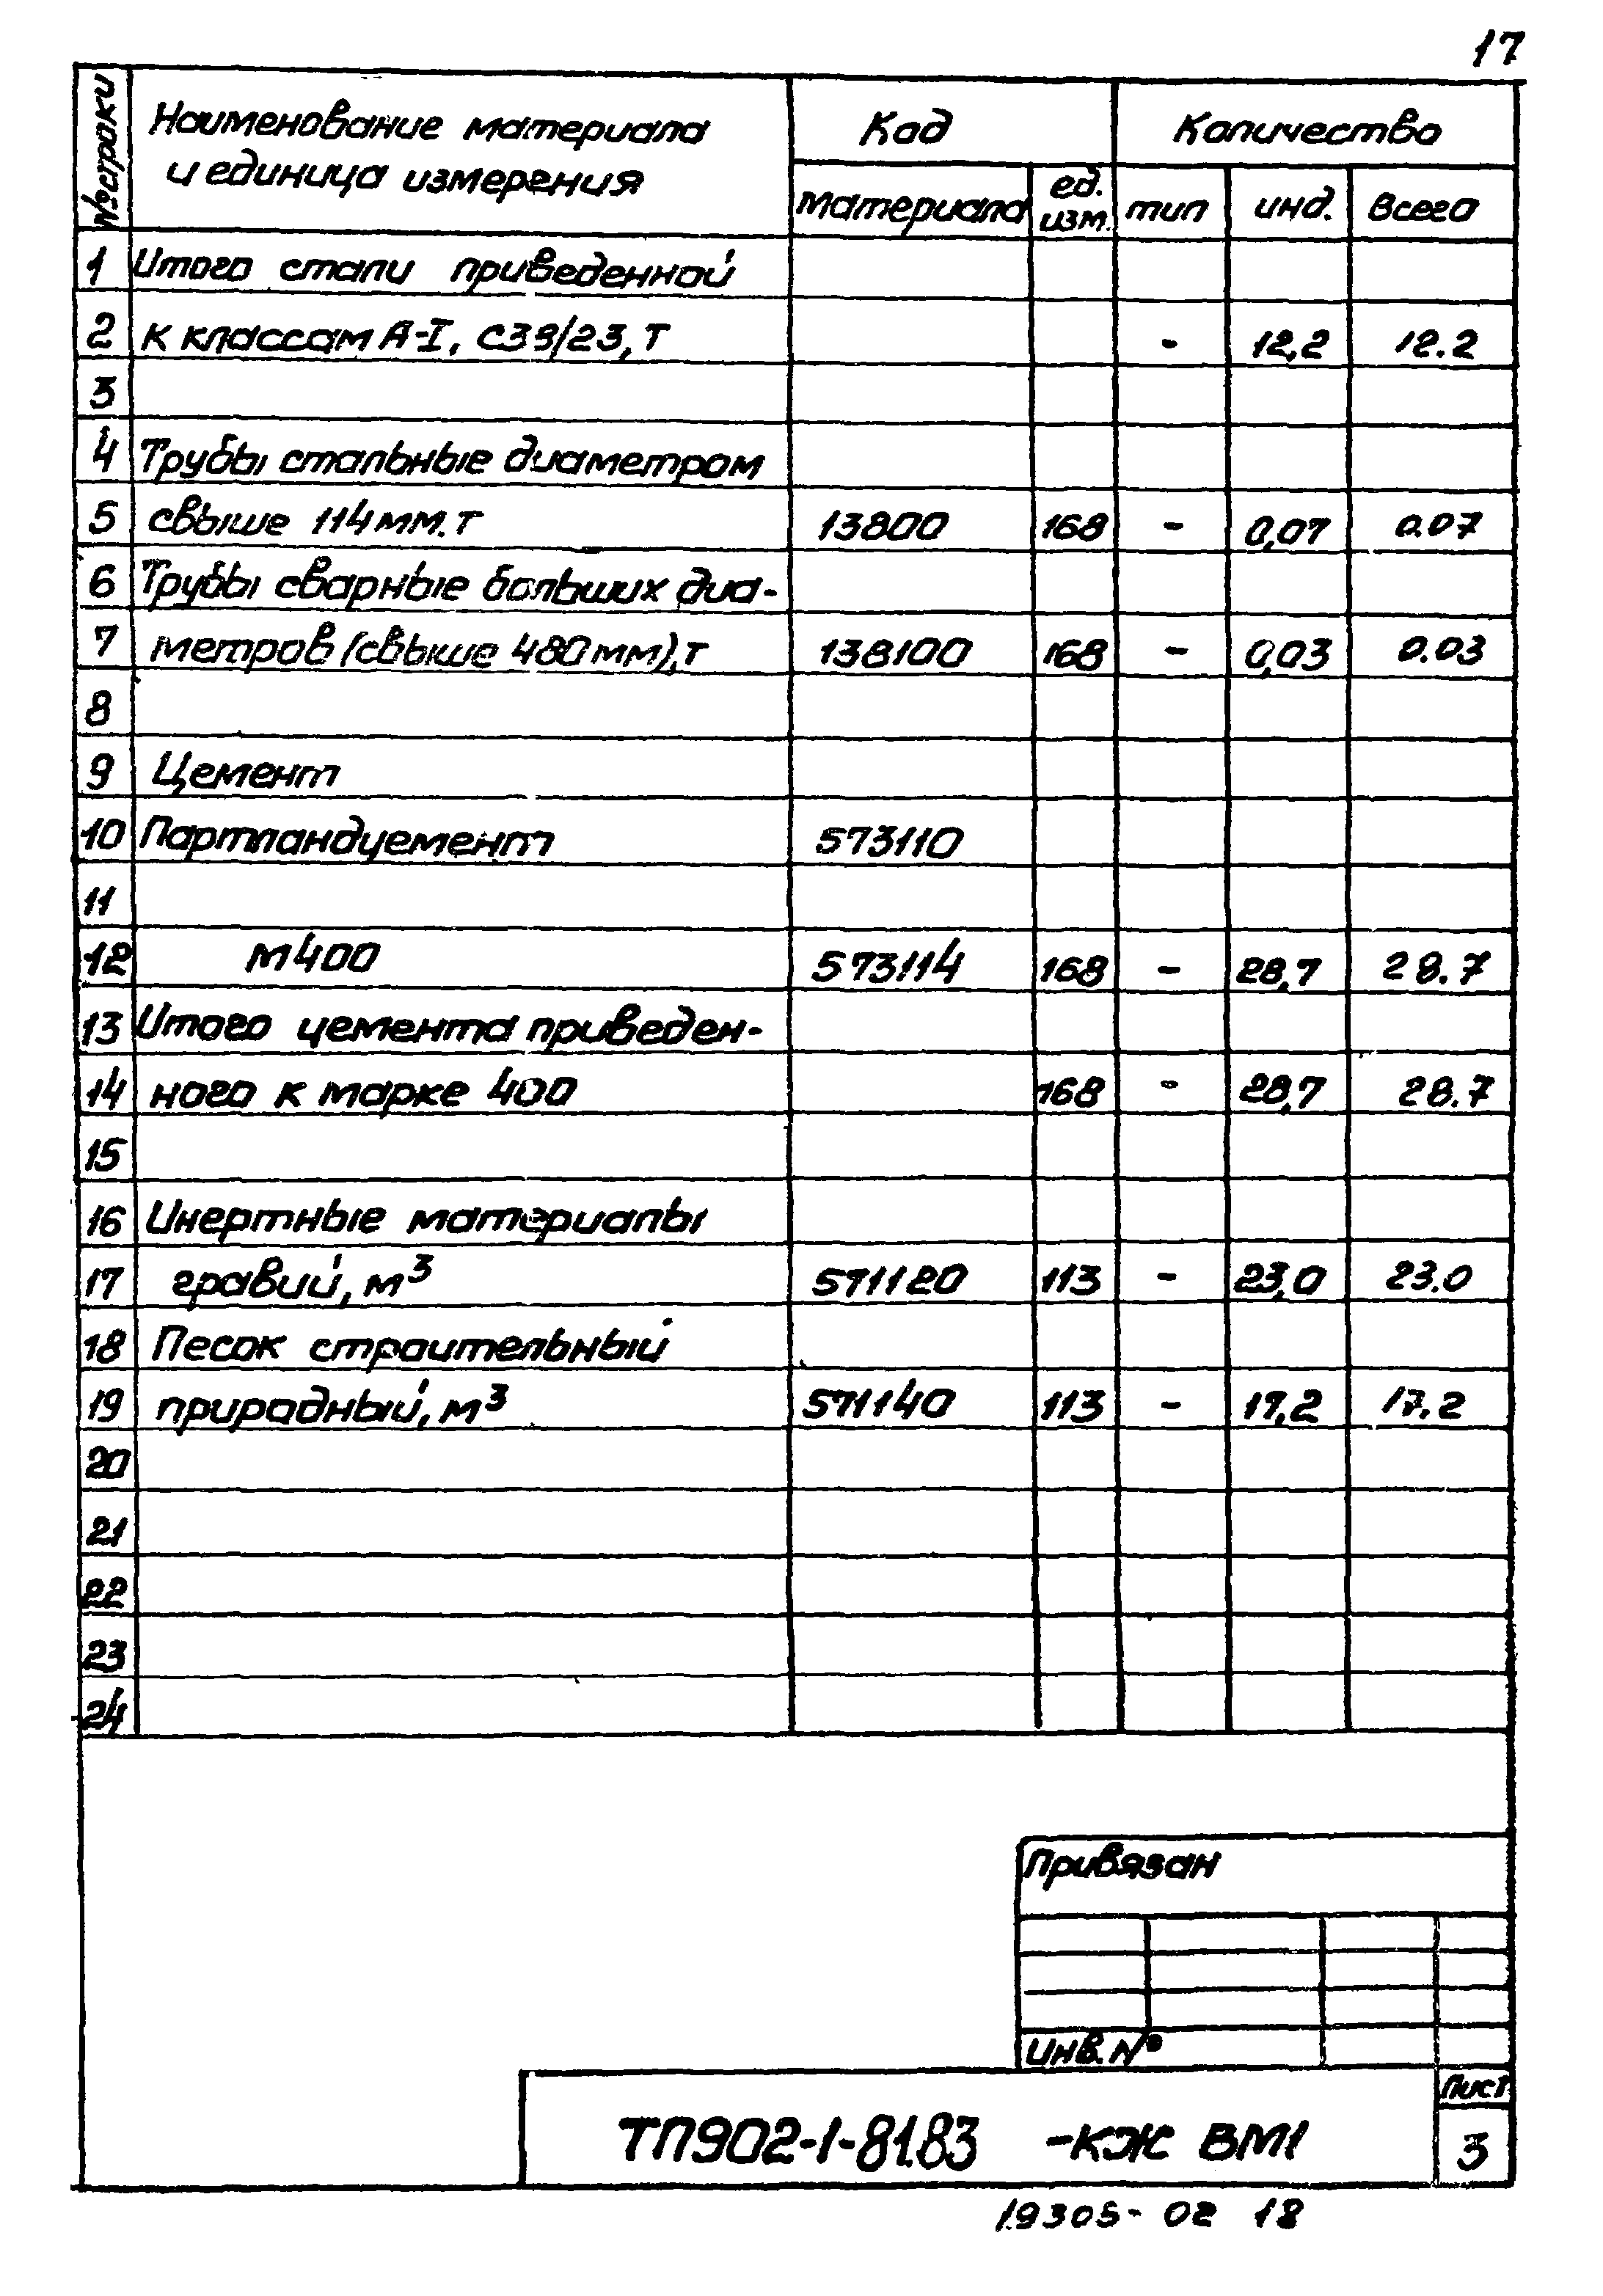 17
№ строки
Наименование материала
и единица измерения
Код
Количество
материала
ед.
изм.
тип
инд.
Всего
1 Итого стали приведенной
2 к классам А-I, С38/23, Т - 12,2 12.2
3
4 Трубы стальные диаметром
5 свыше 114мм.т 13800 168 - 0,07 0.07
6 Трубы сварные больших диа-
7 метров (свыше 480мм),т 138100 168 - 0,03 0.03
8
9 Цемент
10 Портландцемент 573110
11
12 М400 573114 168 - 28,7 28.7
13 Итого цемента приведен-
14 ного к марке 400 168 - 28,7 28.7
15
16 Инертные материалы
17 гравий, м³ 571120 113 - 23,0 23.0
18 Песок строительный
19 природный, м³ 571140 113 - 17,2 17.2
20
21
22
23
24
Привязан
Инв. №
Лист
ТП902-1-81.83 -КЖ ВМ1
3
19305-02 18